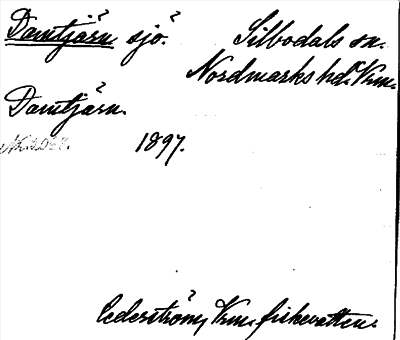 Damtjärn sjö. Silbodals sn.
Nordmarks hd. Vrm.
Damtjärn.
1897.
Cederström, Vrm. fiskevatten.